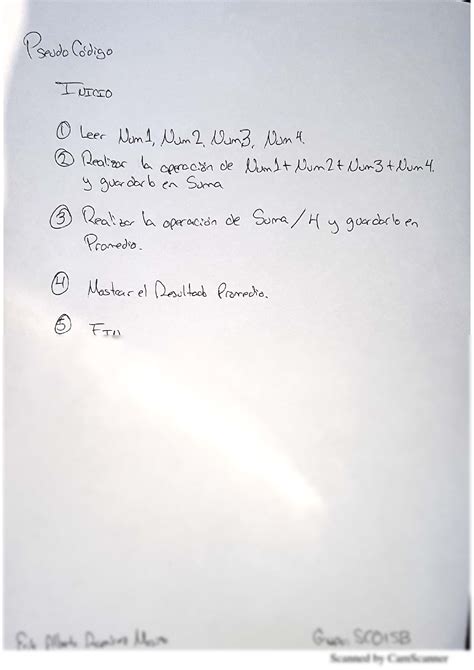 Pseudo Código
INICIO
① Leer Num1, Num2, Num3, Num4.
② Realizar la operación de Num1+Num2+Num3+Num4.
y guardarlo en Suma
③ Realizar la operación de Suma/4 y guardarlo en
Promedio.
④ Mostrar el Resultado Promedio.
⑤ FIN
SC01SB
Scanned by CamScanner